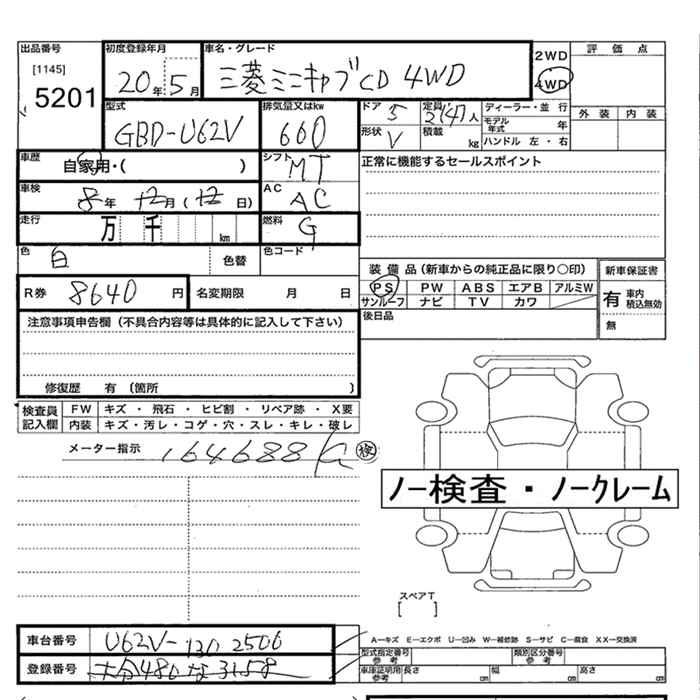 出品番号 初度登録年月 車名・グレード 2WD 評価点
[1145] 20年5月 三菱ミニキャブCD 4WD 4WD
5201 外装 内装
型式 排気量又はkw ドア 5 定員 2(4)人 ディーラー・並行
GBD-U62V 660 形状 V 積載 kg モデル年式 年
ハンドル 左・右
車歴 自家用・( ) シフト MT 正常に機能するセールスポイント
車検 8年12月(12日) AC AC
走行 万 千 km 燃料 G
色 白 色替 色コード
装備品(新車からの純正品に限り○印) 新車保証書
R券 8640円 名変期限 月 日 PS PW ABS エアB アルミW 有 車内積込無効
サンルーフ ナビ TV カワ
注意事項申告欄(不具合内容等は具体的に記入して下さい) 後日品 無
修復歴 有 (箇所 )
検査員記入欄 FW キズ・飛石・ヒビ割・リペア跡・X要
内装 キズ・汚レ・コゲ・穴・スレ・キレ・破レ
メーター指示 164688 検
ノー検査・ノークレーム
スペアT
[ ]
車台番号 U62V-1302506 A―キズ E―エクボ U―凹み W―補修跡 S―サビ C―腐食 XX―交換済
型式指定番号 参考 類別区分番号 参考
登録番号 大分480な3158 車庫証明用参考 長さ cm 幅 cm 高さ cm